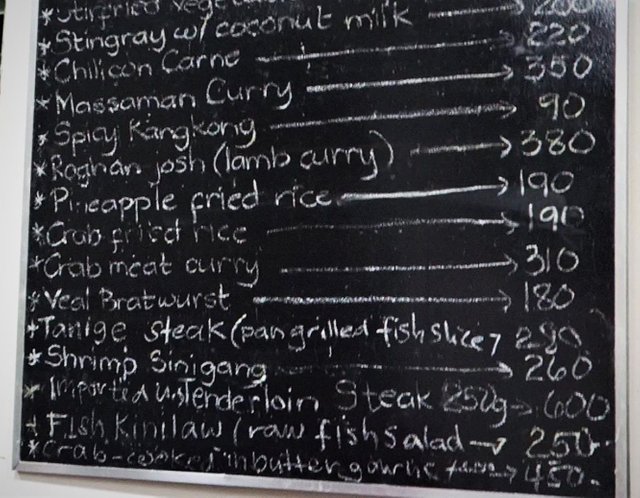 *Stirfried
*Stingray w/ coconut milk → 200
*Chilicon Carne → 220
*Massaman Curry → 350
*Spicy Kangkong → 90
*Roghan josh (lamb curry) → 380
*Pineapple fried rice → 190
*Crab fried rice → 190
*Crab meat curry → 310
*Veal Bratwurst → 180
*Tanige steak (pan grilled fish slice) 290
*Shrimp Sinigang → 260
*Imported U.S Tenderloin Steak 250g → 600
*Fish Kinilaw (raw fish Salad → 250
*Crab - cooked in butter garlic → 450